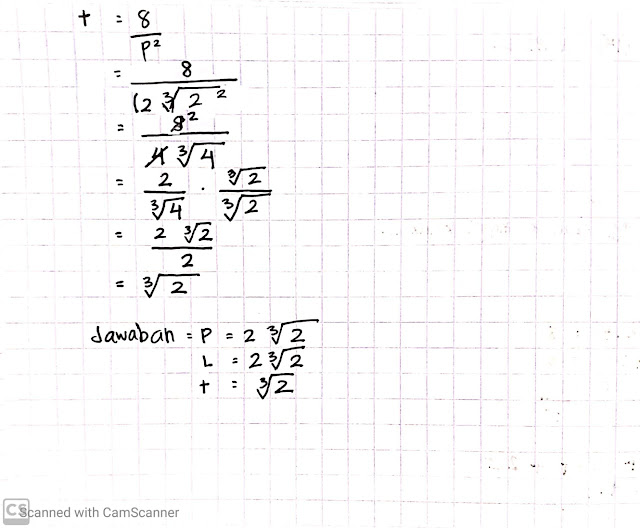 t = 8/p²
= 8/(2 ∛2 ²
= 8²/4 ∛4
= 2/∛4 · ∛2/∛2
= 2 ∛2/2
= ∛2
Jawaban = P = 2 ∛2
L = 2 ∛2
t = ∛2
CS Scanned with CamScanner